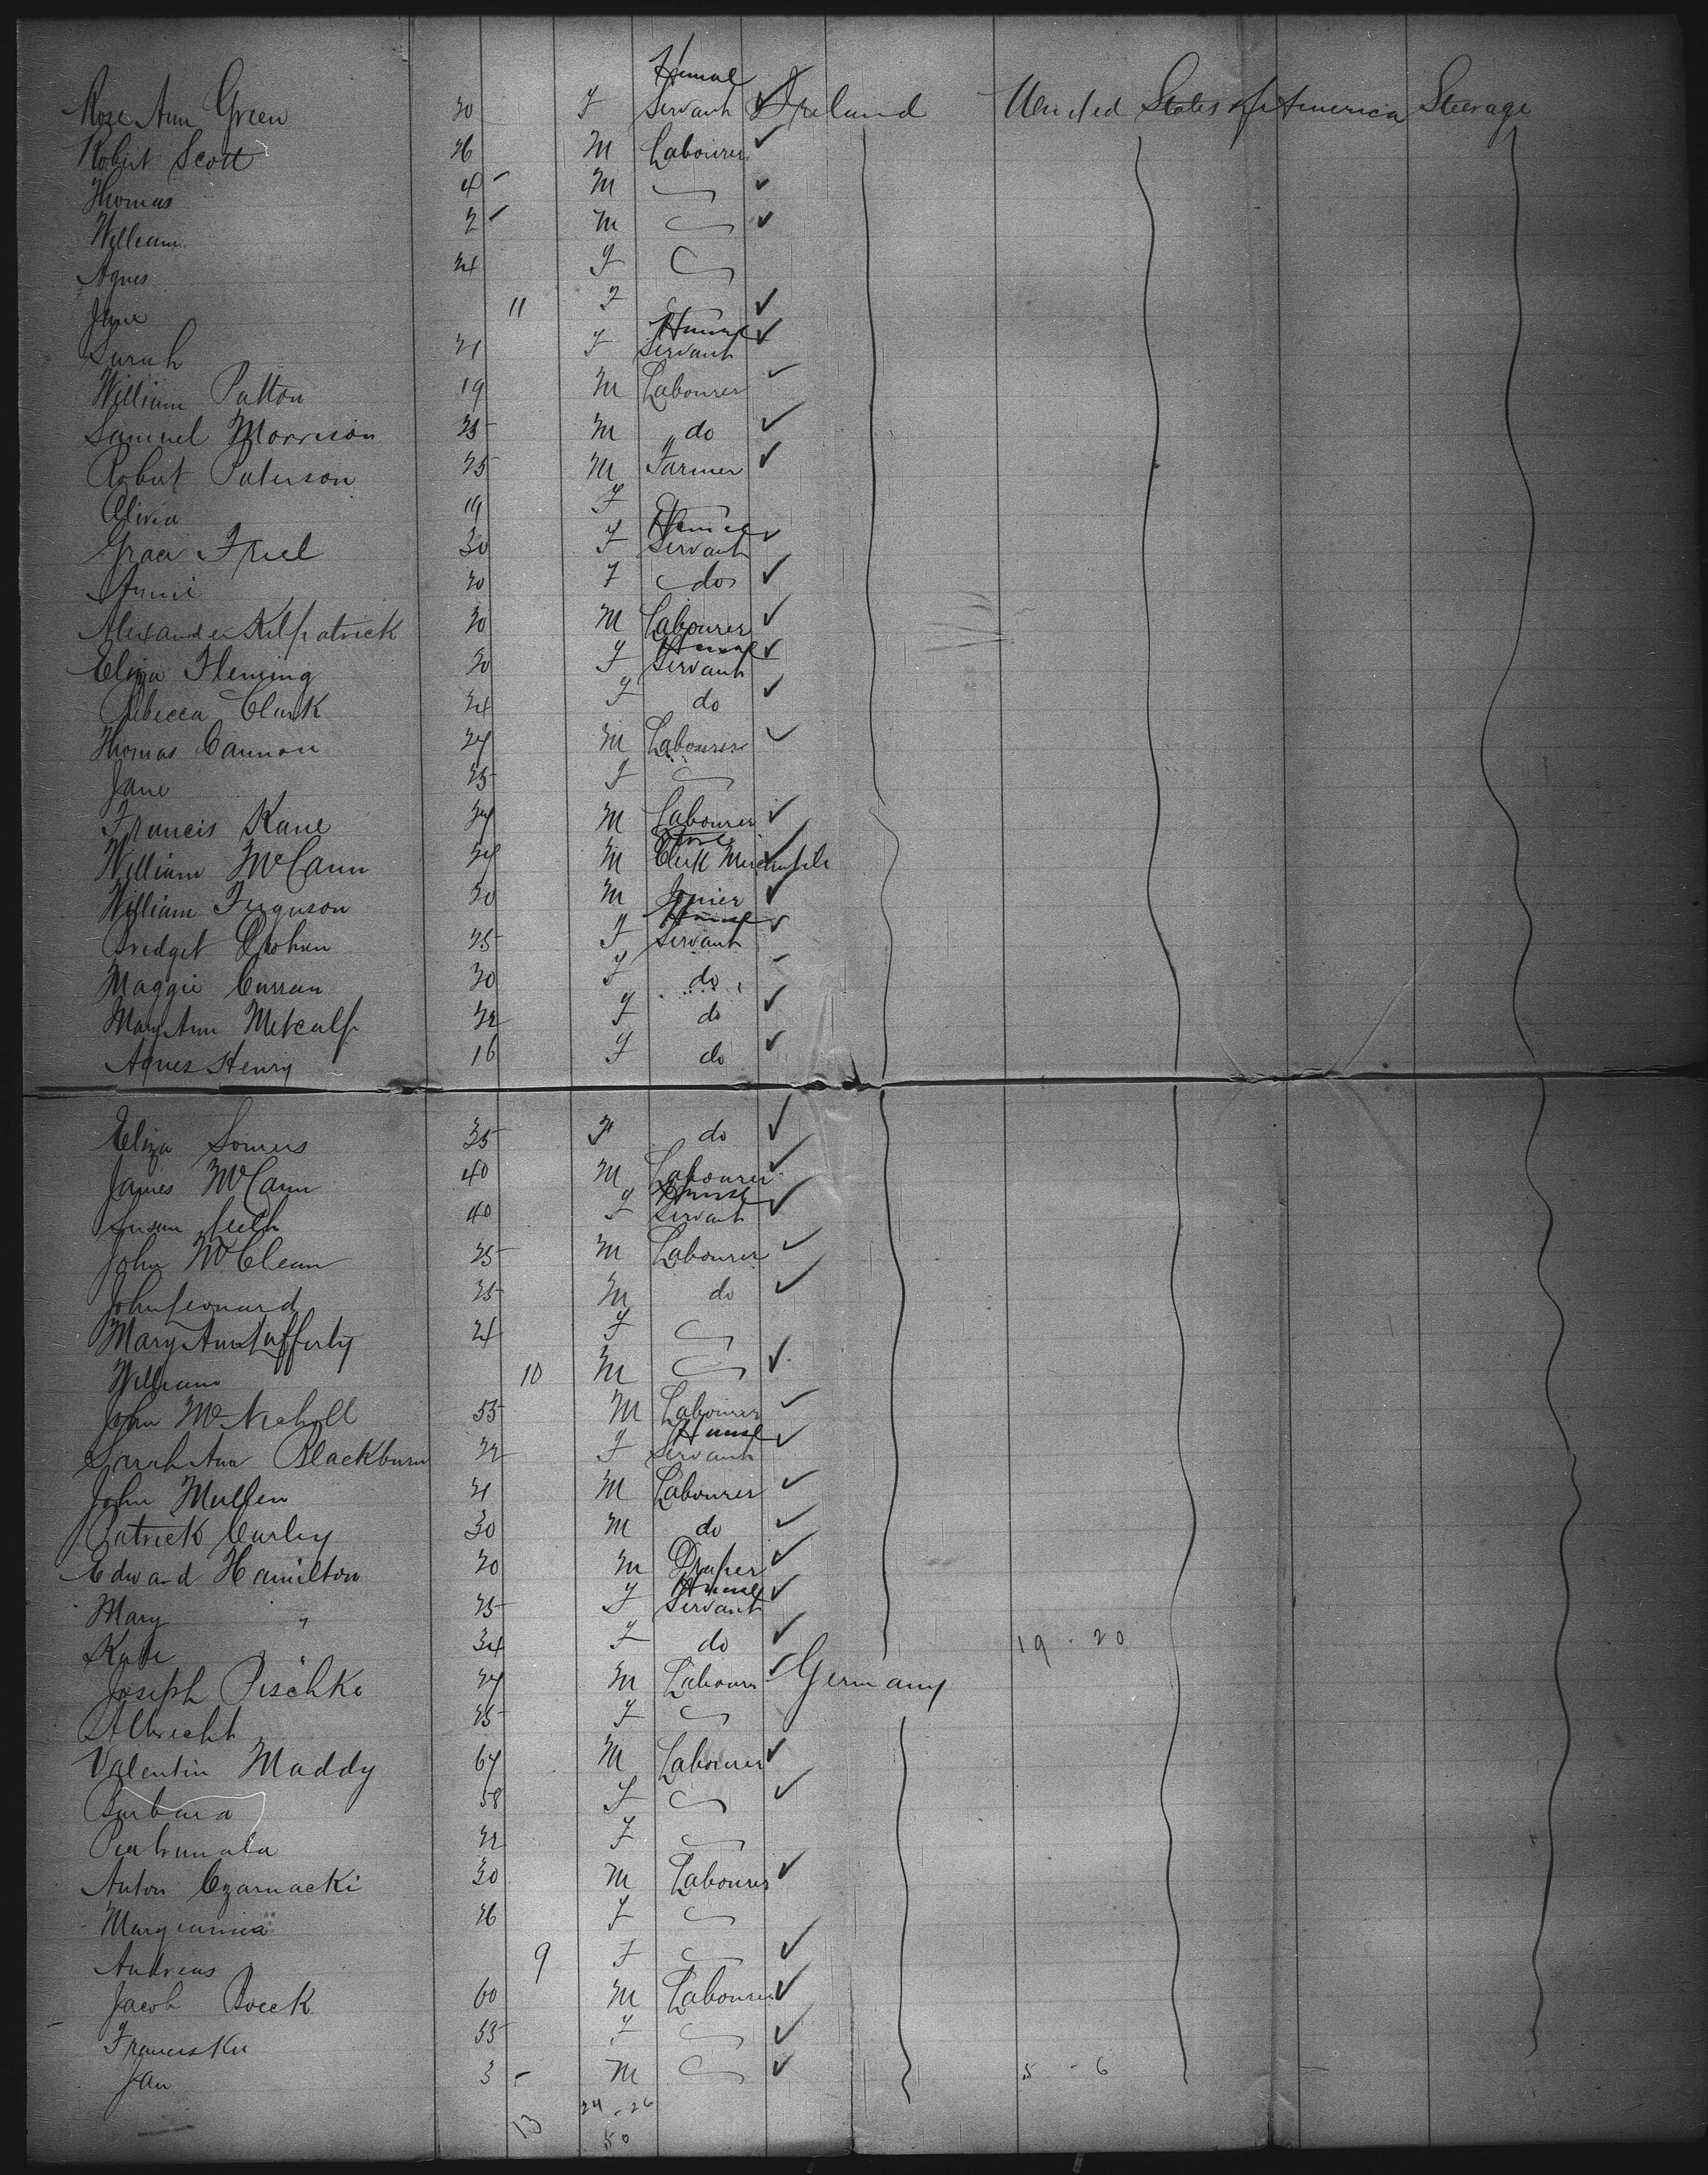 Rose Ann Green 20 F House Servant Ireland United States of America Steerage
Robert Scott 26 M Labourer
Thomas 4 M
William 2 M
Agnes 24 F
Jane 11 F
Sarah 21 F House Servant
William Patton 19 M Labourer
Samuel Morrison 25 M do
Robert Paterson 25 M Farmer
Olivia 19 F
Grace Friel 30 F House Servant
Annie 20 F do
Alexander Kilpatrick 20 M Labourer
Eliza Fleming 20 F House Servant
Rebecca Clark 24 F do
Thomas Cannon 27 M Labourer
Jane 25 F
Francis Kane 27 M Labourer
William McCann 27 M Clerk Mercantile
William Ferguson 20 M Joiner
Bridget 25 F House Servant
Maggie Curran 20 F do
Mary Ann Metcalf 22 F do
Agnes Henry 16 F do
Eliza Somers 35 F do
James McCann 40 M Labourer
Susan 40 F House Servant
John McClean 25 M Labourer
John Leonard 25 M do
Mary Ann Lafferty 24 F
William 10 M
John McNicholl 55 M Labourer
Sarah Ann Blackburn 22 F House Servant
John Mullen 21 M Labourer
Patrick Curley 30 M do
Edward Hamilton 20 M Draper
Mary " 25 F House Servant
Kate 24 F do 19 - 20
Joseph Pischke 27 M Labourer Germany
Albrecht 25 F
Valentin Maddy 67 M Labourer
Barbara 58 F
22 F
Anton Czarnacki 30 M Labourer
26 F
Andreas 9 F
Jacob Boeck 60 M Labourer
Franciska 53 F
Jan 3 M 5 - 6
13 24 - 26
50